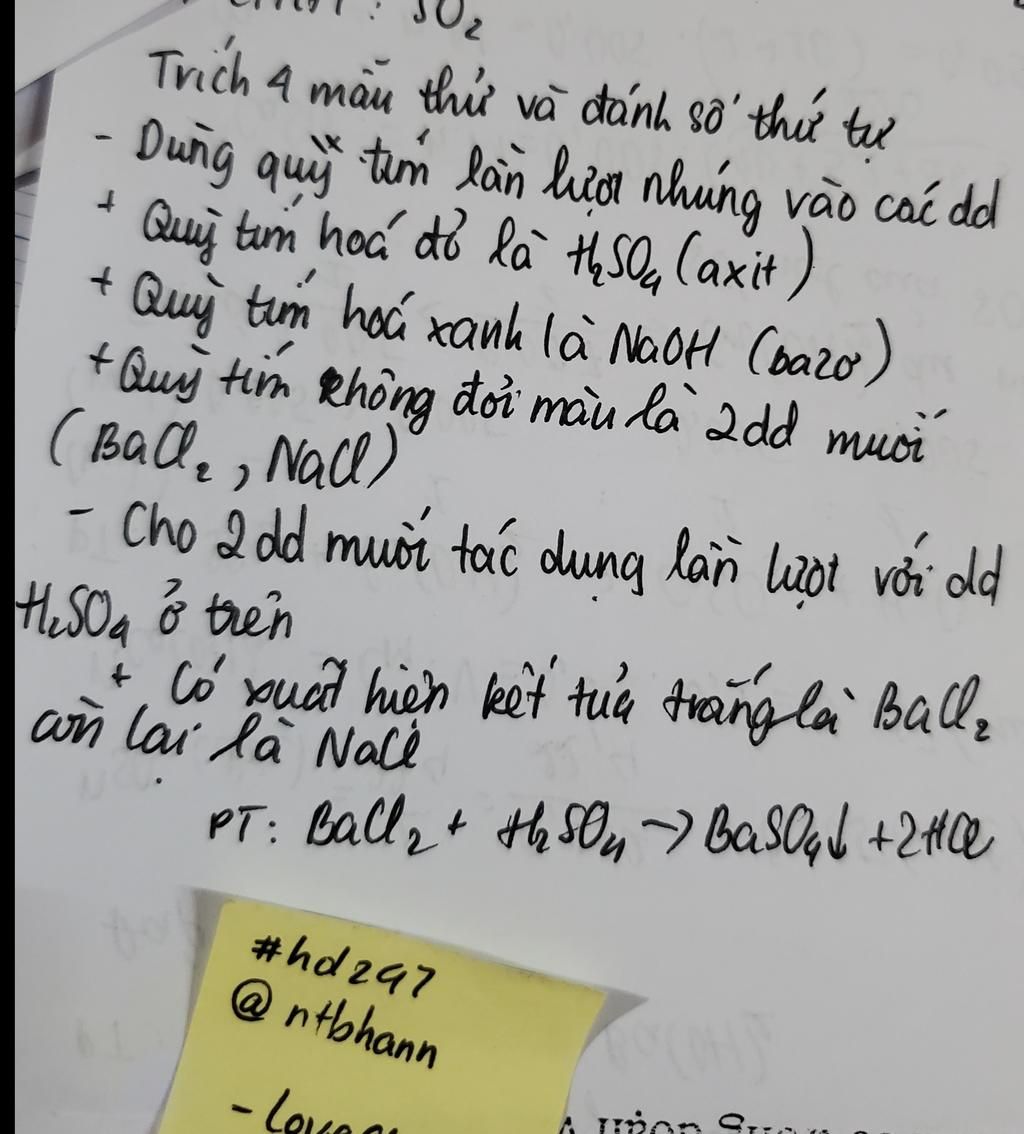 SO₂
Trích 4 mẫu thử và đánh số thứ tự
- Dùng quỳ tím lần lượt nhúng vào các dd
+ Quỳ tím hoá đỏ là H₂SO₄ (axit)
+ Quỳ tím hoá xanh là NaOH (bazơ)
+ Quỳ tím không đổi màu là 2dd muối
(BaCl₂, NaCl)
- Cho 2dd muối tác dụng lần lượt với dd
H₂SO₄ ở trên
+ Có xuất hiện kết tủa trắng là BaCl₂
còn lại là NaCl
PT: BaCl₂ + H₂SO₄ → BaSO₄↓ + 2HCl
#hd297
@ntbhann